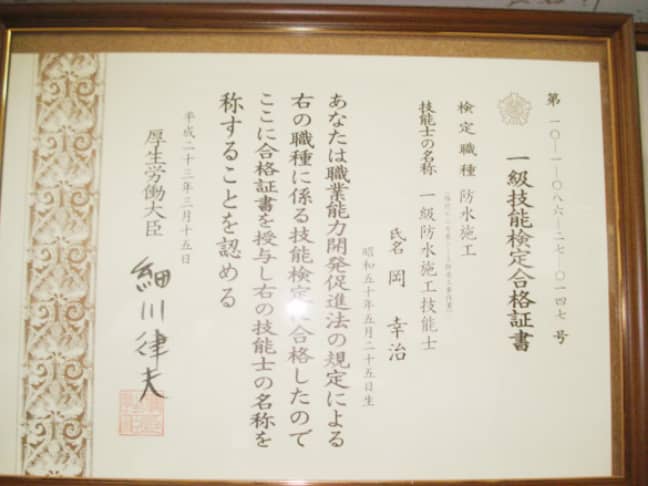 第 一〇―一―〇八六―二七―〇一四七 号
一級技能検定合格証書
検定職種 防水施工
技能士の名称 一級防水施工技能士
氏名 岡 幸治
昭和五十年五月二十五日生
あなたは職業能力開発促進法の規定による
右の職種に係る技能検定 合格したので
ここに合格証書を授与し右の技能士の名称を
称することを認める
平成二十三年三月十五日
厚生労働大臣 細川律夫